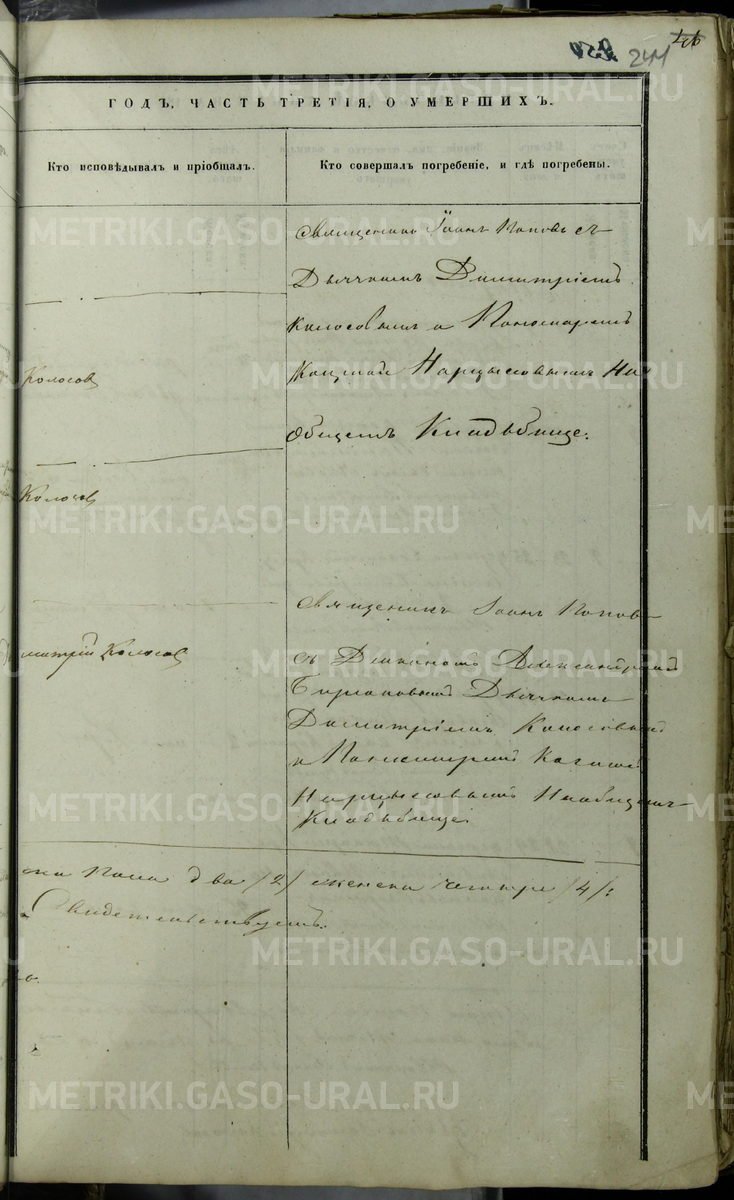 241
ГОДЪ, ЧАСТЬ ТРЕТІЯ, О УМЕРШИХЪ.
Кто исповѣдывалъ и пріобщалъ.
Кто совершалъ погребеніе, и гдѣ погребены.
Священникъ Іоаннъ Поповъ съ
Дьячкомъ Димитріемъ
Колосовымъ и Пономаремъ
Нарцысовымъ На
общемъ Кладбище.
Колосов
Колосов
Священникъ Іоанн Попов
съ Діакономъ Александромъ
Дьячкомъ
Димитріемъ Колосовымъ
и Пономаремъ
Нарцысовымъ На общемъ
Кладбище.
митрій Колосов
ска пола два /2/ женска четыре /4/:
Свидетельствуемъ.
METRIKI.GASO-URAL.RU